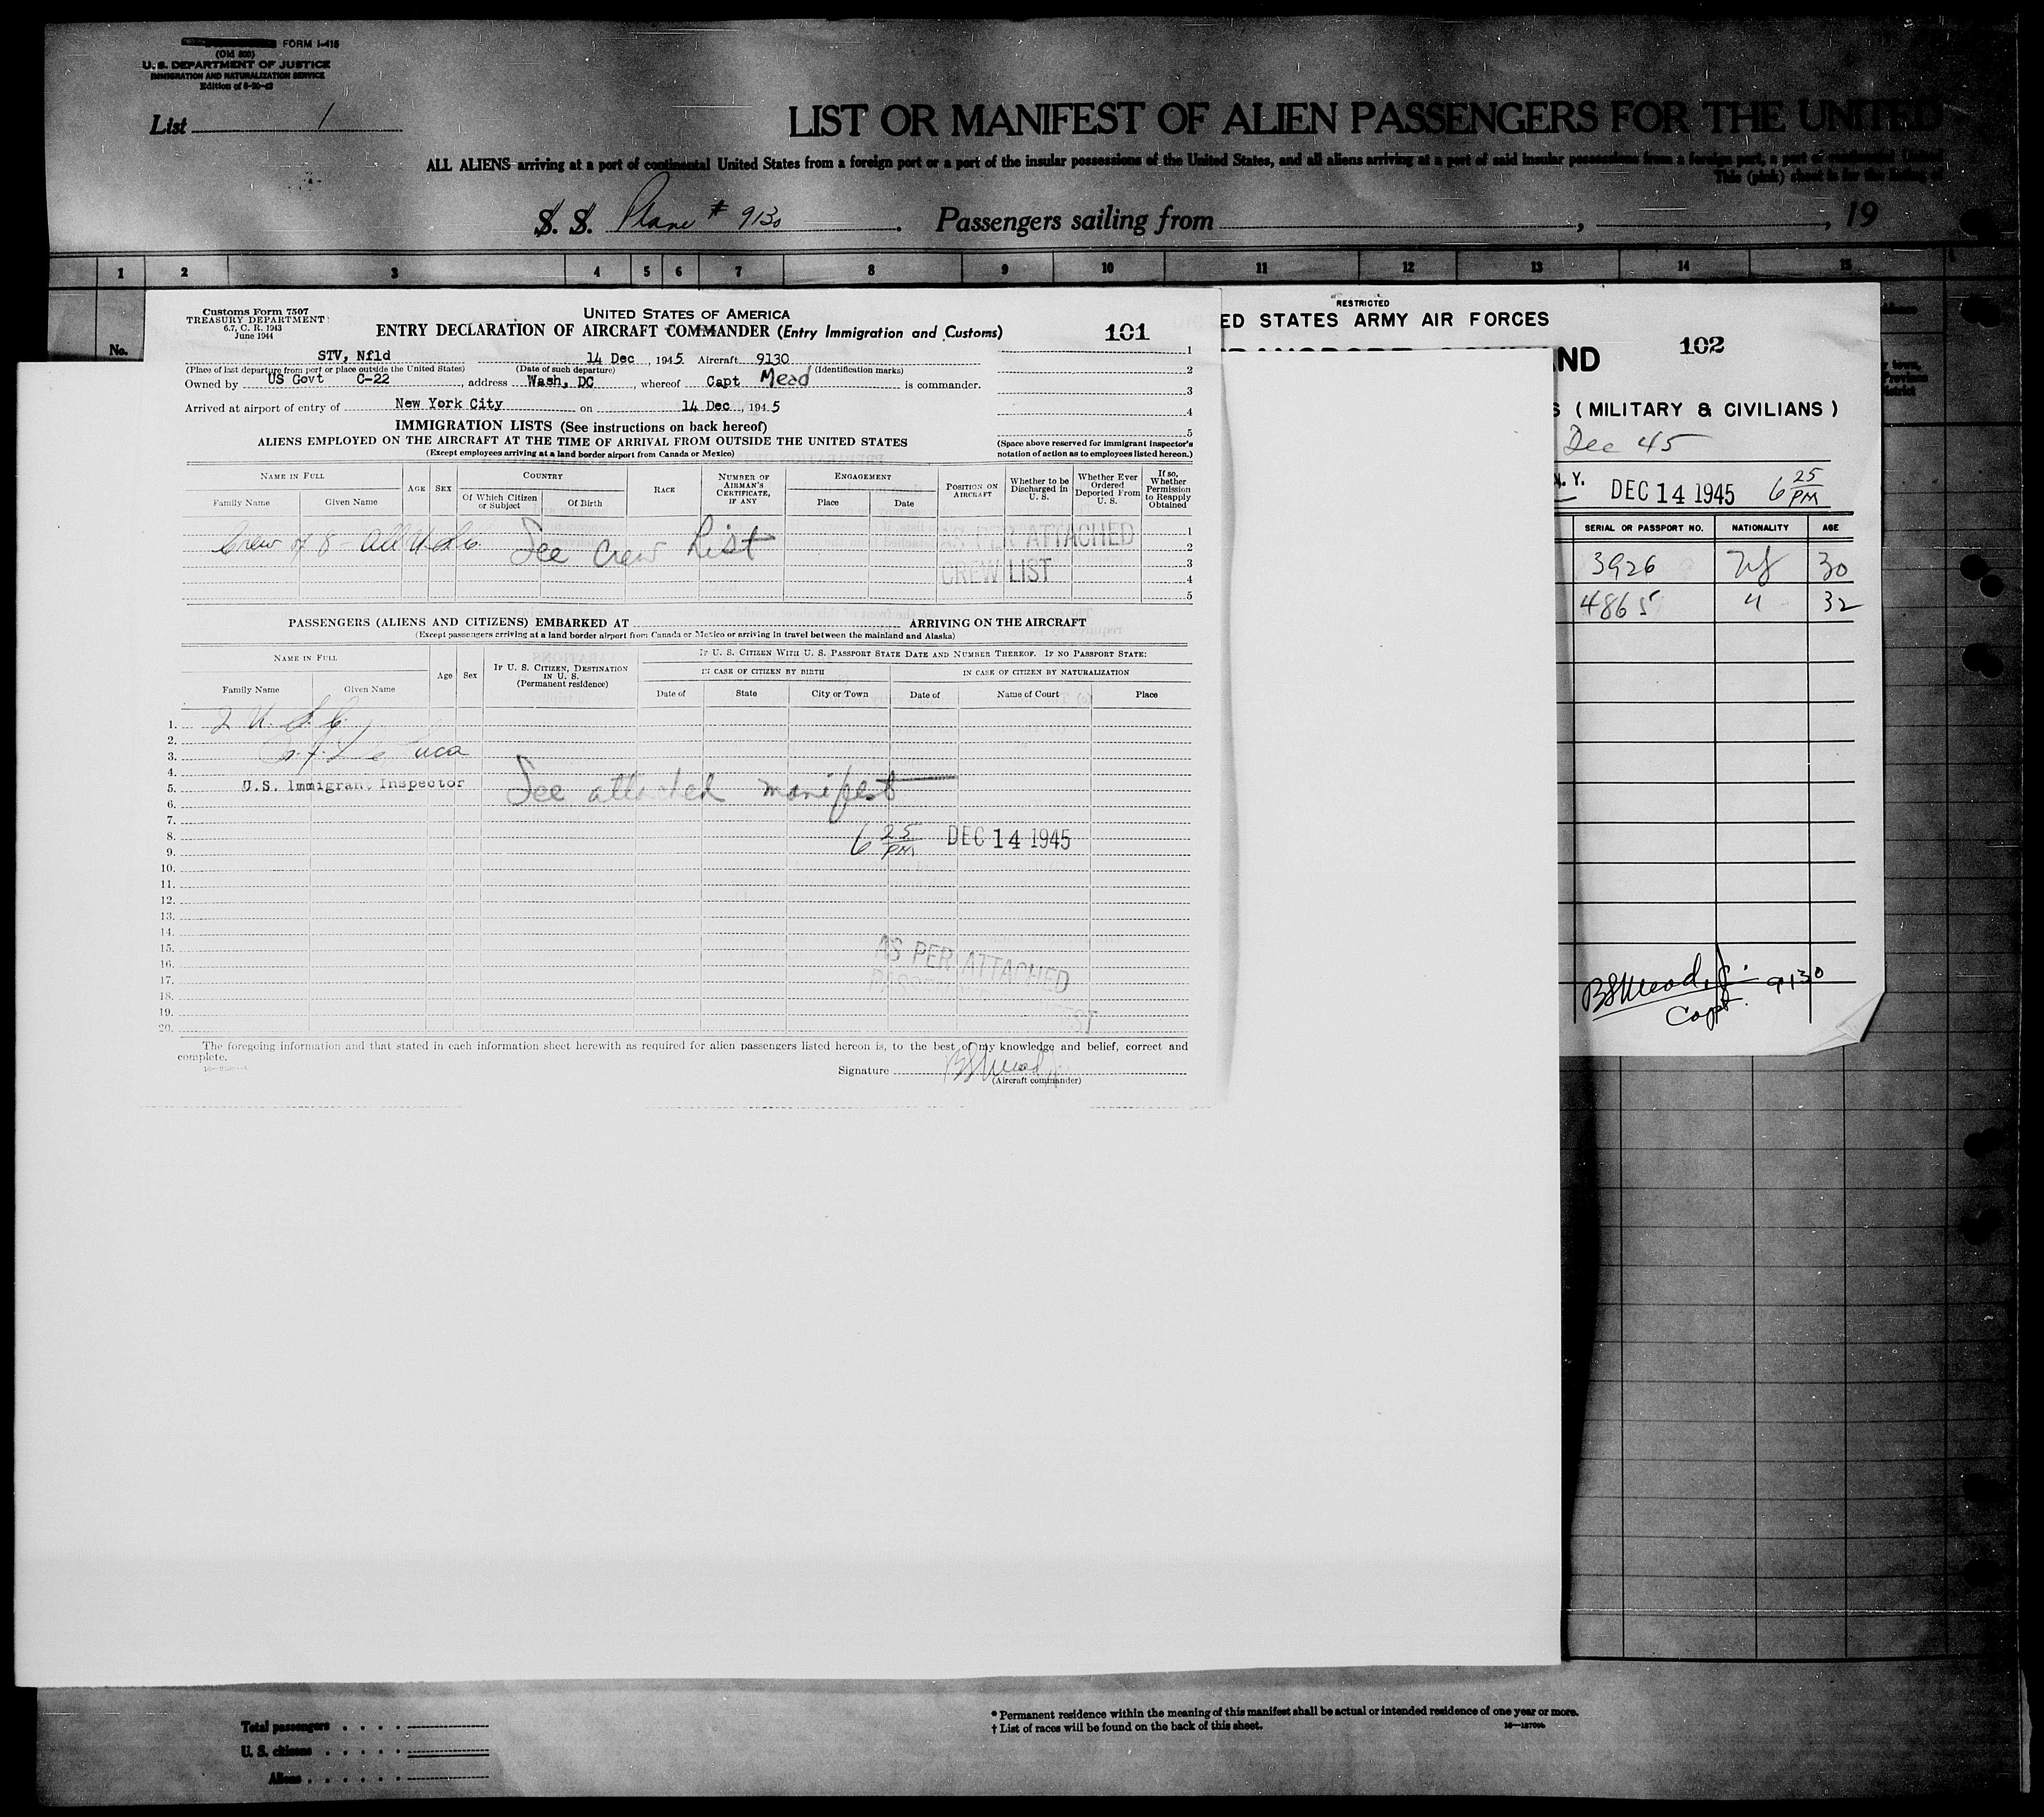 FORM I-415
(Old 500)
U. S. DEPARTMENT OF JUSTICE
IMMIGRATION AND NATURALIZATION SERVICE
List 1
LIST OR MANIFEST OF ALIEN PASSENGERS FOR THE UNITED
ALL ALIENS arriving at a port of continental United States from a foreign port or a port of the insular possessions of the United States, and all aliens arriving at a port of said insular possessions from a foreign port, a port of continental United
This (pink) sheet is for the listing of
S. S. Plane # 9130 . Passengers sailing from , , 19
1 2 3 4 5 6 7 8 9 10 11 12 13 14 15
No.
Customs Form 7507
TREASURY DEPARTMENT
6.7, C. R. 1943
June 1944
UNITED STATES OF AMERICA
ENTRY DECLARATION OF AIRCRAFT COMMANDER (Entry Immigration and Customs)
101
STV, Nfld 14 Dec , 1945 Aircraft 9130
(Place of last departure from port or place outside the United States) (Date of such departure) (Identification marks)
Owned by US Govt C-22 , address Wash, DC , whereof Capt Mead is commander.
Arrived at airport of entry of New York City on 14 Dec , 1945
1
2
3
4
5
IMMIGRATION LISTS (See instructions on back hereof)
ALIENS EMPLOYED ON THE AIRCRAFT AT THE TIME OF ARRIVAL FROM OUTSIDE THE UNITED STATES
(Except employees arriving at a land border airport from Canada or Mexico)
(Space above reserved for immigrant inspector's
notation of action as to employees listed hereon.)
NAME IN FULL AGE SEX COUNTRY RACE NUMBER OF AIRMAN'S CERTIFICATE, IF ANY ENGAGEMENT POSITION ON AIRCRAFT Whether to be Discharged in U. S. Whether Ever Ordered Deported From U. S. If so, Whether Permission to Reapply Obtained
Family Name Given Name Of Which Citizen or Subject Of Birth Place Date
Crew of 8 - All U.S.C. See Crew List
AS PER ATTACHED
CREW LIST
1
2
3
4
5
PASSENGERS (ALIENS AND CITIZENS) EMBARKED AT ARRIVING ON THE AIRCRAFT
(Except passengers arriving at a land border airport from Canada or Mexico or arriving in travel between the mainland and Alaska)
NAME IN FULL Age Sex IF U. S. CITIZEN, DESTINATION IN U. S. (Permanent residence) IF U. S. CITIZEN WITH U. S. PASSPORT STATE DATE AND NUMBER THEREOF. IF NO PASSPORT STATE:
IN CASE OF CITIZEN BY BIRTH IN CASE OF CITIZEN BY NATURALIZATION
Family Name Given Name Date of State City or Town Date of Name of Court Place
1. 2 U. S. C.
2.
3.
4.
5. U.S. Immigrant Inspector See attached manifest
6.
7.
8. 6 25 PM DEC 14 1945
9.
10.
11.
12.
13.
14.
15. AS PER ATTACHED
16.
17.
18.
19.
20.
The foregoing information and that stated in each information sheet herewith as required for alien passengers listed hereon is, to the best of my knowledge and belief, correct and
complete.
Signature BSMead Jr
(Aircraft commander)
RESTRICTED
ED STATES ARMY AIR FORCES
102
ND
S (MILITARY & CIVILIANS)
Dec 45
N. Y. DEC 14 1945 6 25 PM
SERIAL OR PASSPORT NO. NATIONALITY AGE
3926 Nf 30
4865 " 32
BSMead, Jr - 9130
Capt.
Total passengers
U. S. citizens
Aliens
* Permanent residence within the meaning of this manifest shall be actual or intended residence of one year or more.
† List of races will be found on the back of this sheet.